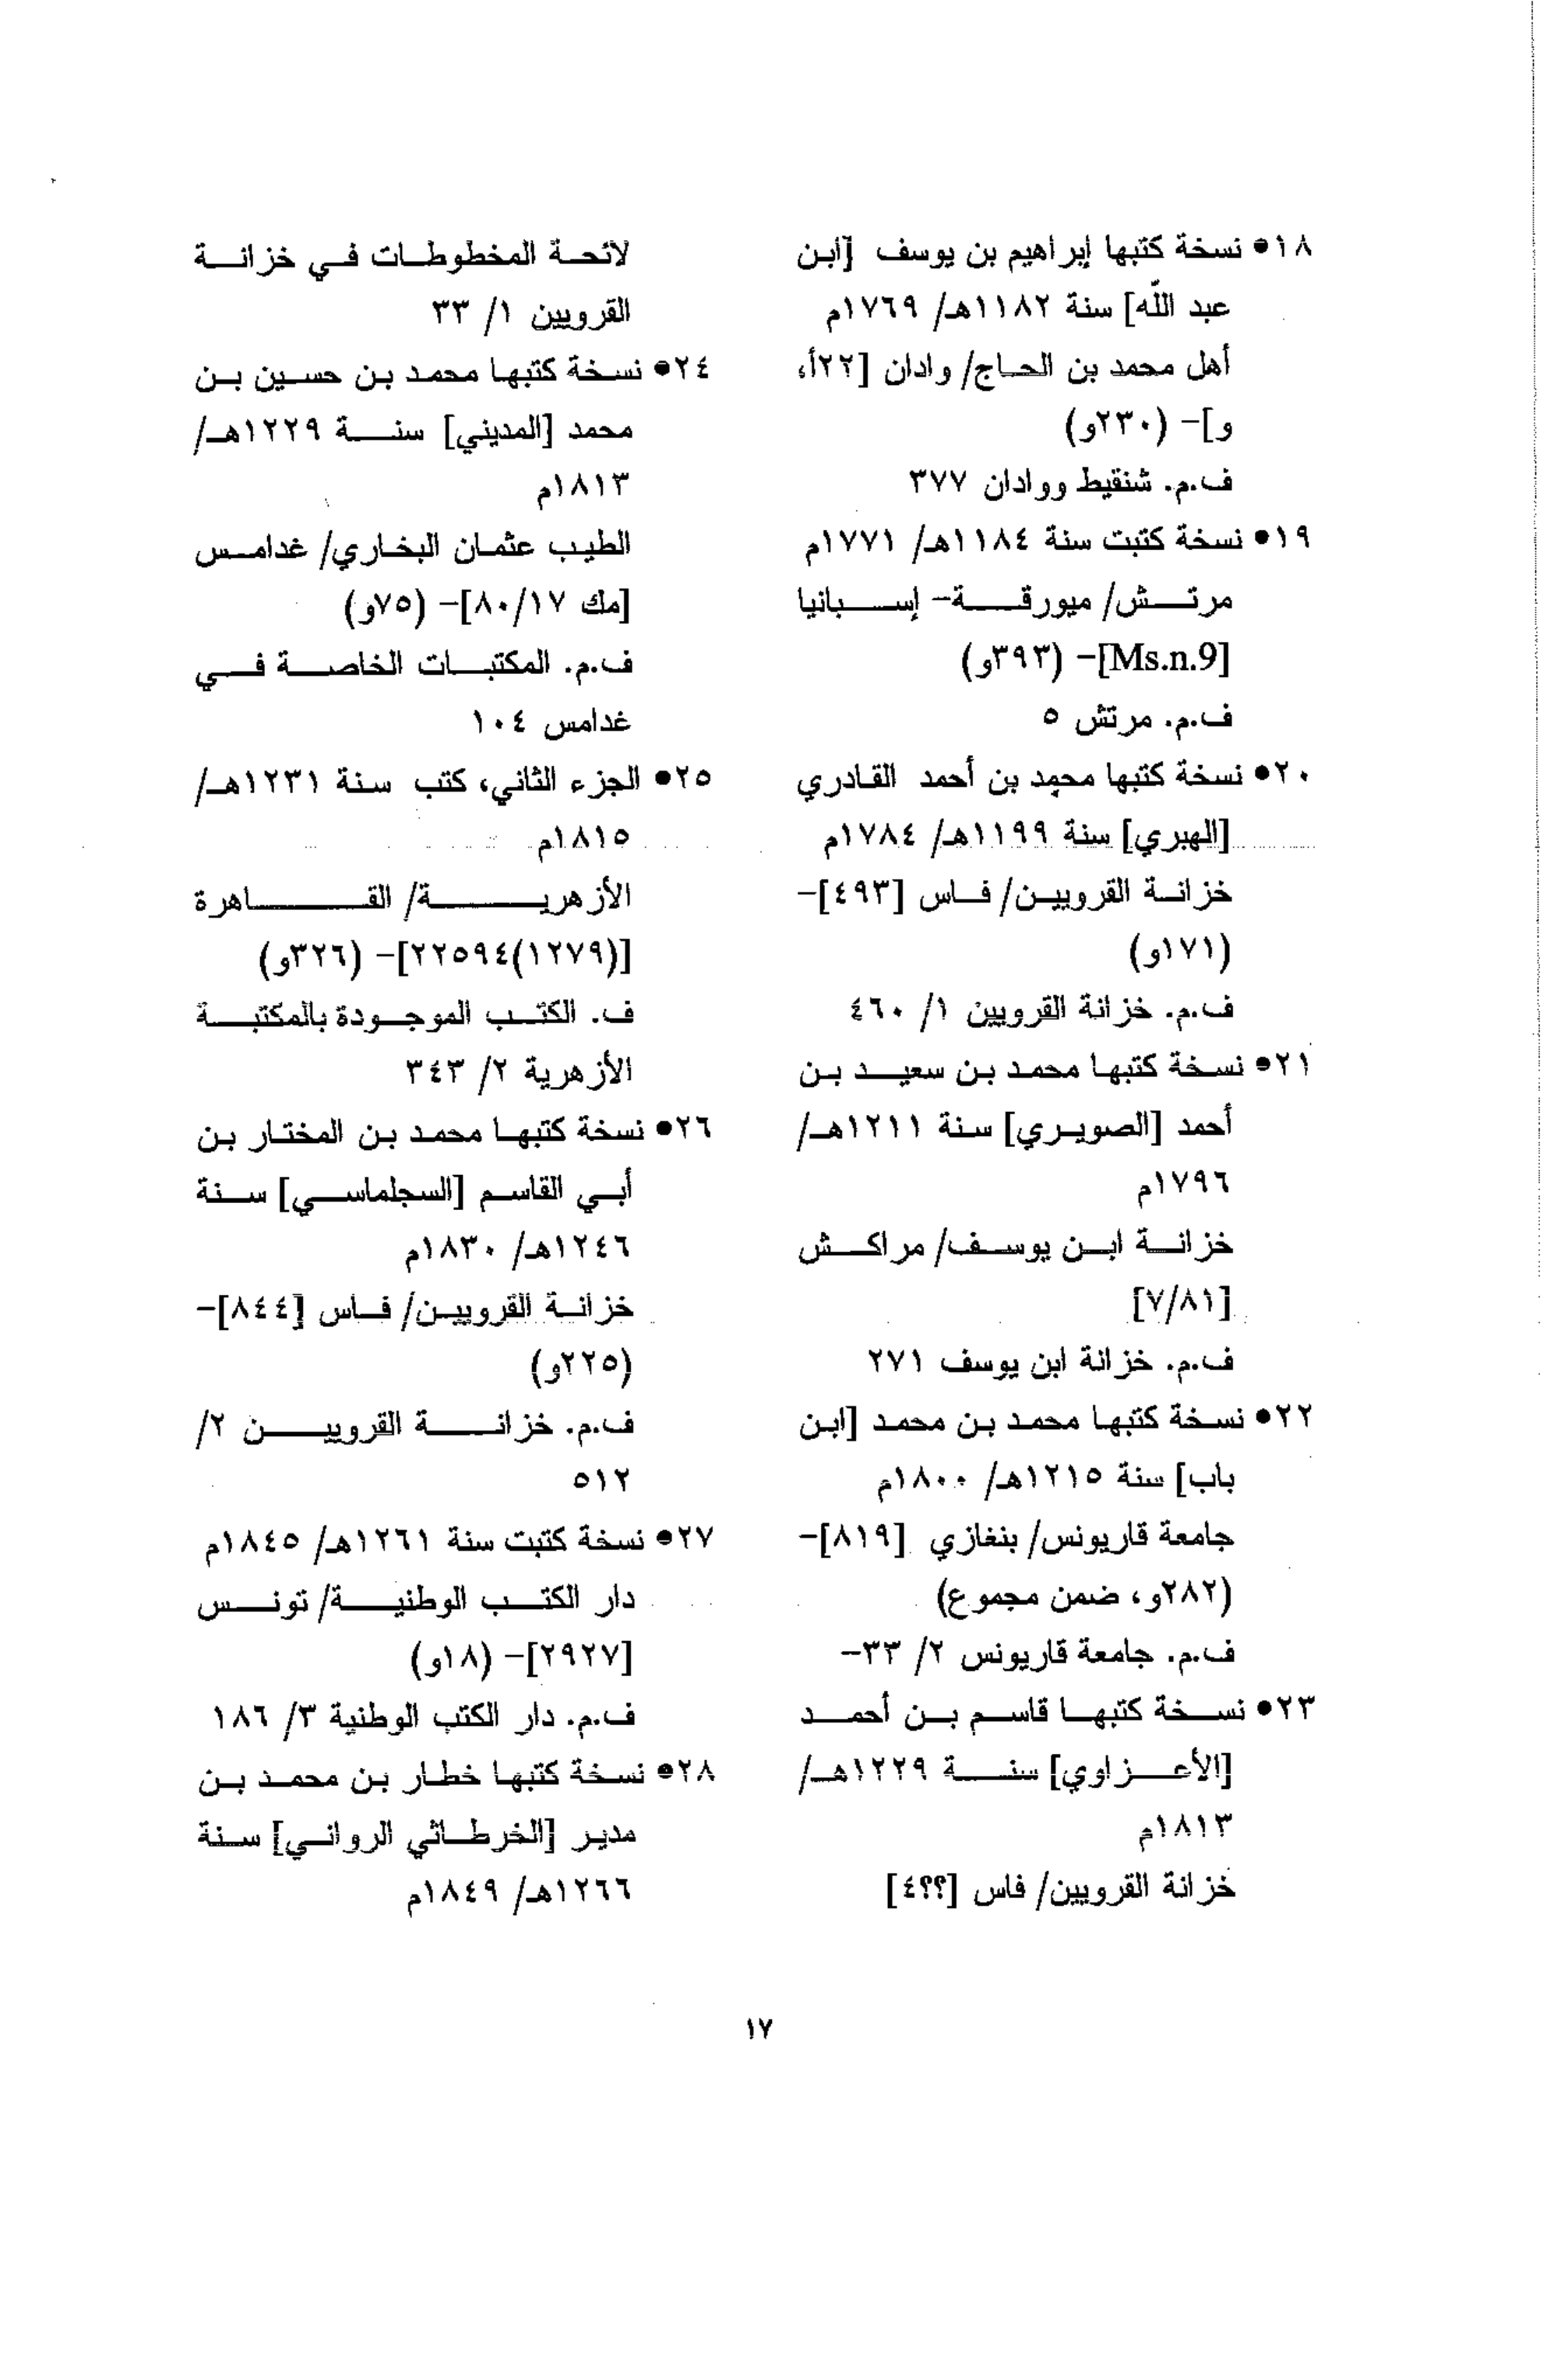 ١٨● نسخة كتبها إبراهيم بن يوسف [ابن
عبد الله] سنة ١١٨٢هـ/ ١٧٦٩م
أهل محمد بن الحاج/ وادان [٢٢أ،
و]- (٢٣٠و)
ف.م. شنقيط ووادان ٣٧٧
١٩● نسخة كتبت سنة ١١٨٤هـ/ ١٧٧١م
مرتش/ ميورقة- إسبانيا
[Ms.n.9]- (٣٩٣و)
ف.م. مرتش ٥
٢٠● نسخة كتبها محمد بن أحمد القادري
[الهبري] سنة ١١٩٩هـ/ ١٧٨٤م
خزانة القرويين/ فاس [٤٩٣]-
(١٧١و)
ف.م. خزانة القرويين ١/ ٤٦٠
٢١● نسخة كتبها محمد بن سعيد بن
أحمد [الصويري] سنة ١٢١١هـ/
١٧٩٦م
خزانة ابن يوسف/ مراكش
[٧/٨١]
ف.م. خزانة ابن يوسف ٢٧١
٢٢● نسخة كتبها محمد بن محمد [ابن
باب] سنة ١٢١٥هـ/ ١٨٠٠م
جامعة قاريونس/ بنغازي [٨١٩]-
(٢٨٢و، ضمن مجموع)
ف.م. جامعة قاريونس ٢/ ٣٣-
٢٣● نسخة كتبها قاسم بن أحمد
[الأعزاوي] سنة ١٢٢٩هـ/
١٨١٣م
خزانة القرويين/ فاس [٤؟؟]
لائحة المخطوطات في خزانة
القرويين ١/ ٣٣
٢٤● نسخة كتبها محمد بن حسين بن
محمد [المديني] سنة ١٢٢٩هـ/
١٨١٣م
الطيب عثمان البخاري/ غدامس
[مك ٨٠/١٧]- (٧٥و)
ف.م. المكتبات الخاصة في
غدامس ١٠٤
٢٥● الجزء الثاني، كتب سنة ١٢٣١هـ/
١٨١٥م
الأزهرية/ القاهرة
[(١٢٧٩)٢٢٥٩٤]- (٣٢٦و)
ف. الكتب الموجودة بالمكتبة
الأزهرية ٢/ ٣٤٣
٢٦● نسخة كتبها محمد بن المختار بن
أبي القاسم [السجلماسي] سنة
١٢٤٦هـ/ ١٨٣٠م
خزانة القرويين/ فاس [٨٤٤]-
(٢٢٥و)
ف.م. خزانة القرويين ٢/
٥١٢
٢٧● نسخة كتبت سنة ١٢٦١هـ/ ١٨٤٥م
دار الكتب الوطنية/ تونس
[٢٩٢٧]- (١٨و)
ف.م. دار الكتب الوطنية ٣/ ١٨٦
٢٨● نسخة كتبها خطار بن محمد بن
مدير [الخرطائي الرواني] سنة
١٢٦٦هـ/ ١٨٤٩م
١٧